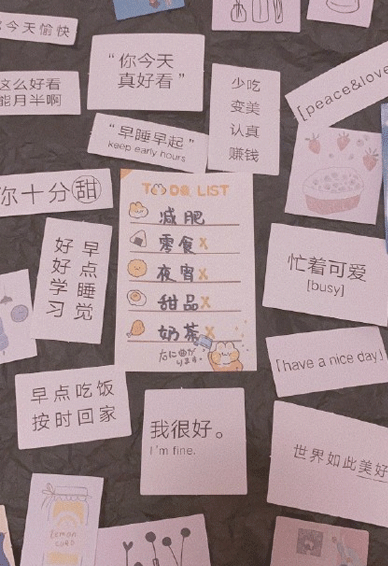 今天愉快
“你今天
真好看”
少吃
变美
认真
赚钱
[peace&love
这么好看
能月半啊
“早睡早起”
keep early hours
你十分甜
TO DO LIST
减肥
零食 x
夜宵 x
甜品 x
奶茶 x
早点睡觉
好好学习
忙着可爱
[busy]
[have a nice day]
早点吃饭
按时回家
我很好。
I'm fine.
世界如此美好
lemon